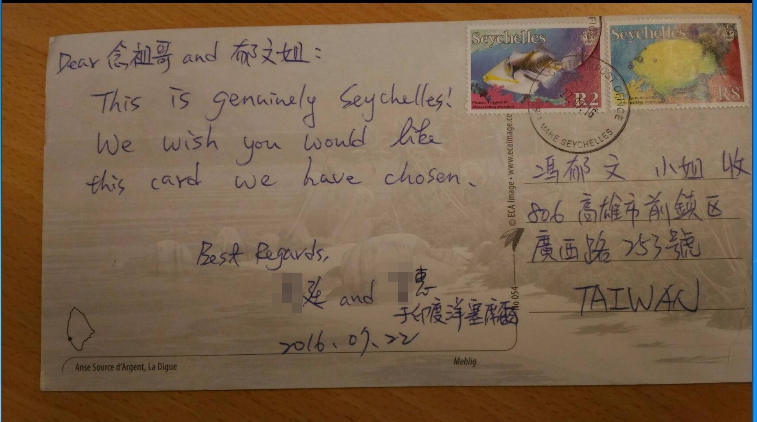 Dear 念祖哥 and 郁文姐：
This is genuinely Seychelles!
We wish you would like
this card we have chosen.
Best Regards,
廷 and 惠
于印度洋塞席爾
2016.07.22
Anse Source d'Argent, La Digue
Mehlig
© ECA Image • www.ecaimage.co
No 054
Seychelles
R2
Seychelles
R8
MAHE SEYCHELLES
馮郁文 小姐 收
806 高雄市前鎮区
廣西路 253號
TAIWAN